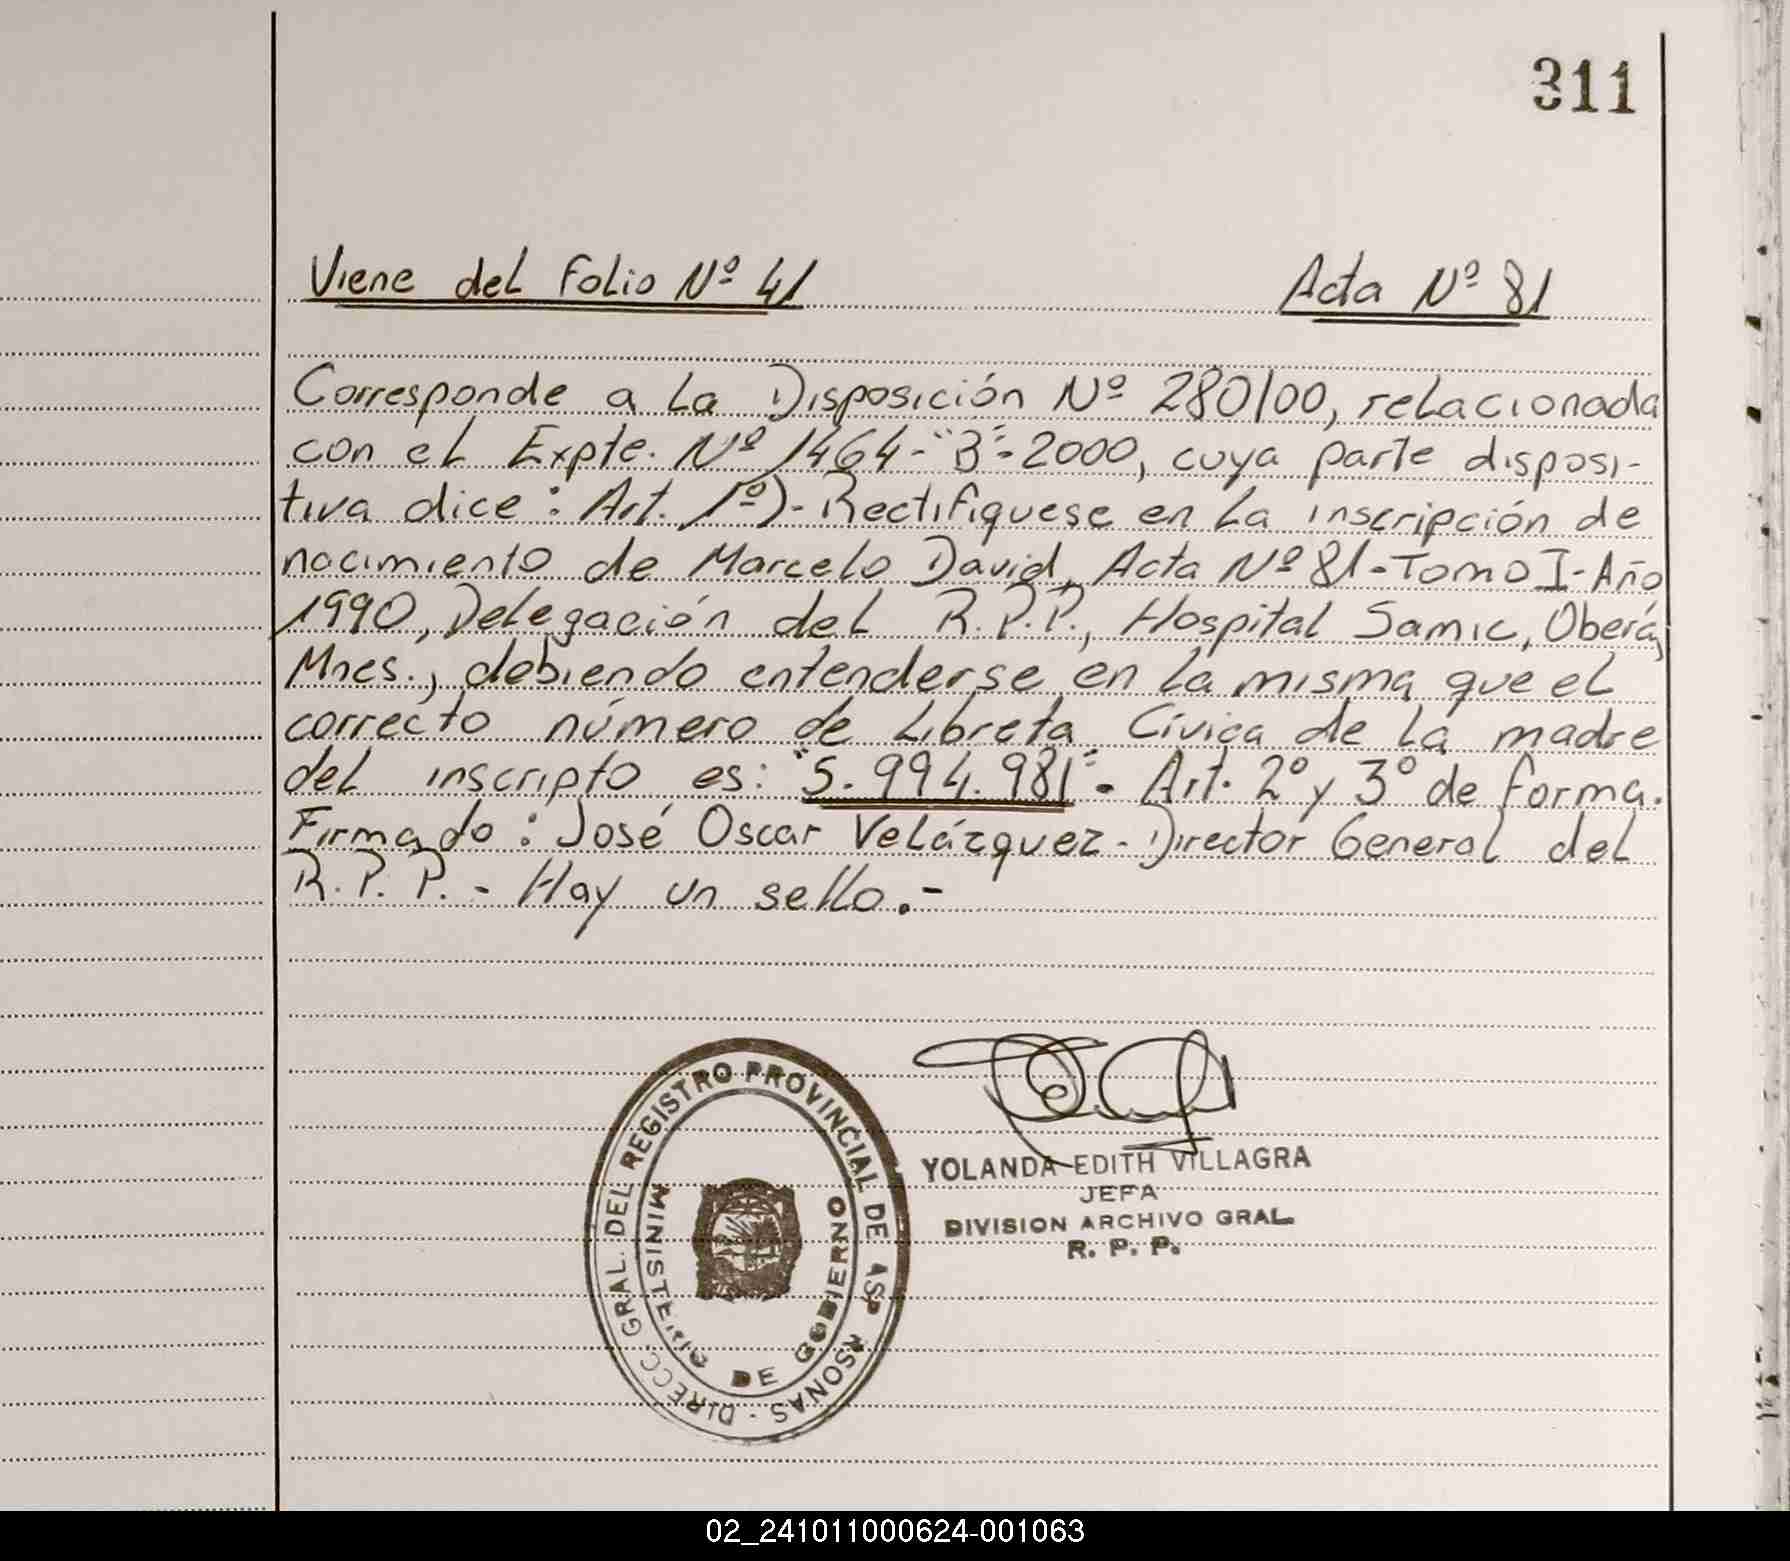 311
Viene del Folio Nº 41 Acta Nº 81
Corresponde a La Disposición Nº 280/00, relacionada
con el Expte. Nº 1464-"B"-2000, cuya parte disposi-
tiva dice: Art. 1º)- Rectifiquese en La inscripción de
nacimiento de Marcelo David, Acta Nº 81-Tomo I-Año
1990, Delegación del R.P.P., Hospital Samic, Oberá,
Mnes., debiendo entenderse en La misma que el
correcto número de Libreta Cívica de La madre
del inscripto es: "5.994.981"- Art. 2º y 3º de forma.
Firmado: José Oscar Velázquez- Director General del
R.P.P.- Hay un sello.-
DIRECC. GRAL. DEL REGISTRO PROVINCIAL DE
MINISTERIO DE GOBIERNO
YOLANDA EDITH VILLAGRA
JEFA
DIVISION ARCHIVO GRAL.
R. P. P.
02_241011000624-001063